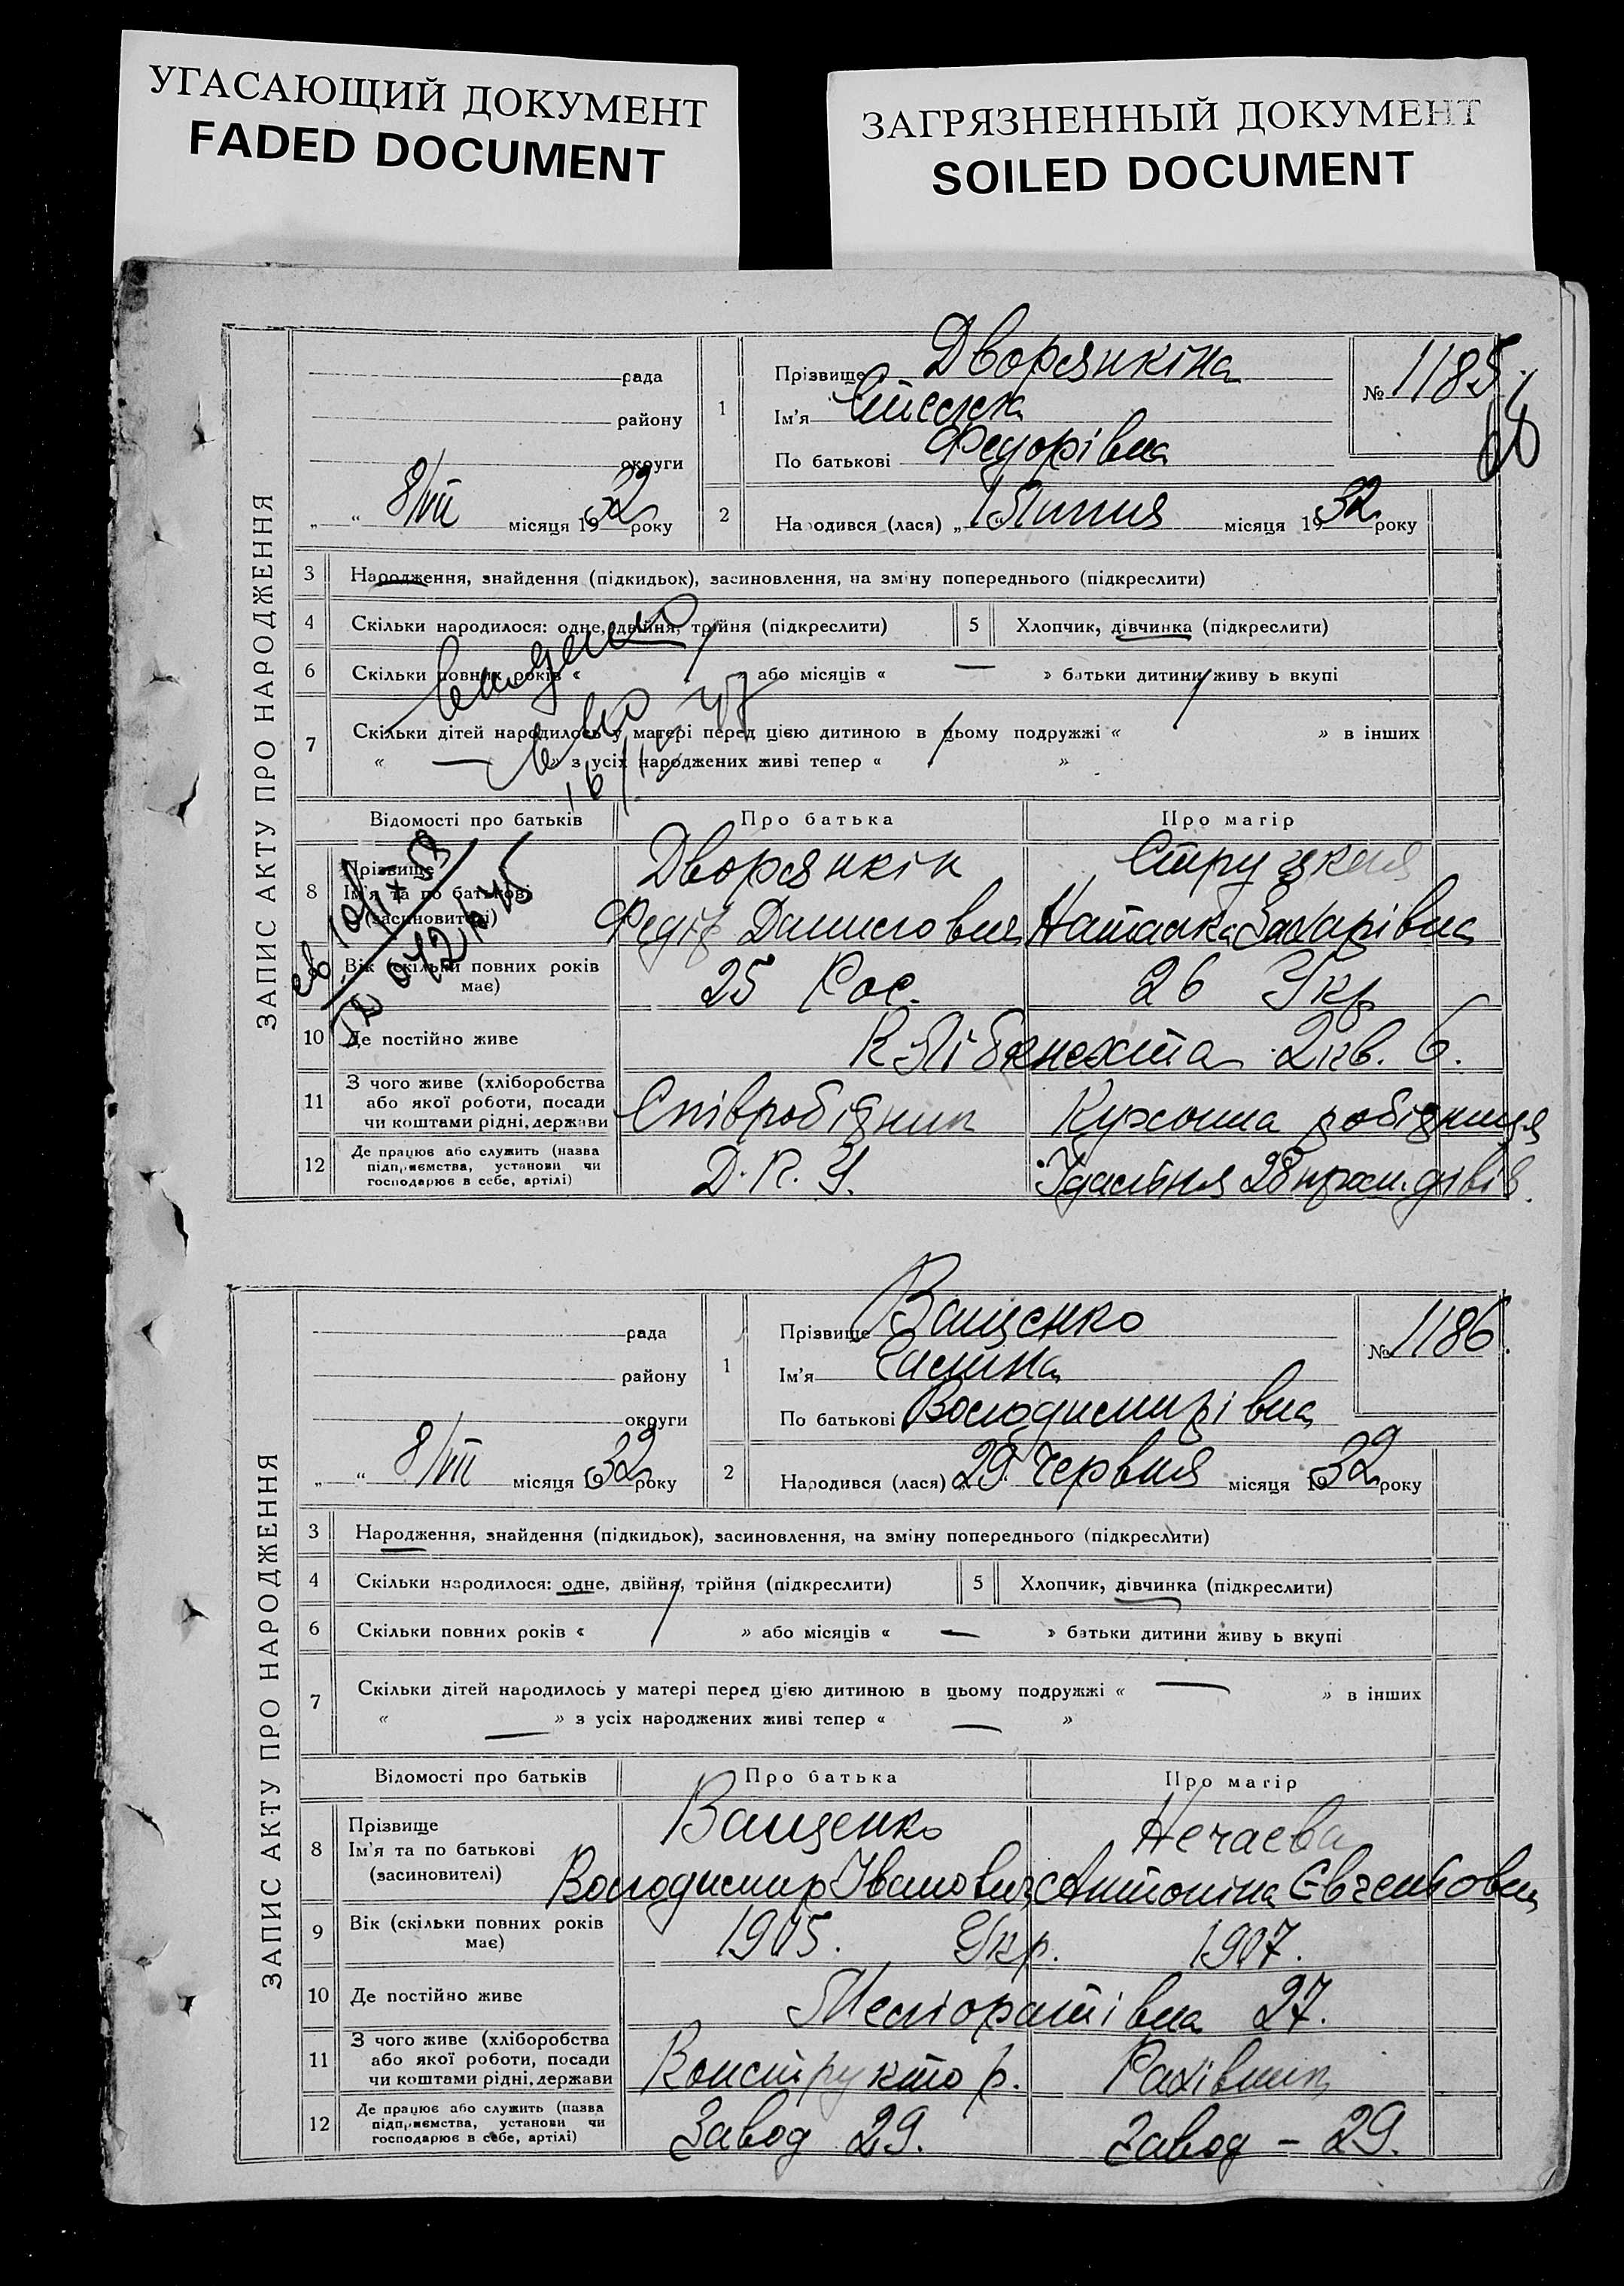 УГАСАЮЩИЙ ДОКУМЕНТ
FADED DOCUMENT
ЗАГРЯЗНЕННЫЙ ДОКУМЕНТ
SOILED DOCUMENT
ЗАПИС АКТУ ПРО НАРОДЖЕННЯ
рада
району
округи
„ “ 8/VII місяця 1932 року
1
Прізвище Дворянкіна
Ім'я
По батькові Федорівна
№ 1185
2
Народився (лася) „ Липня місяця 1932 року
3 Народження, знайдення (підкидьок), засиновлення, на зміну попереднього (підкреслити)
4 Скільки народилося: одне, двійня, трійня (підкреслити)
5 Хлопчик, дівчинка (підкреслити)
6 Скільки повних років « » або місяців « — » батьки дитини живу ь вкупі
7 Скільки дітей народилось у матері перед цією дитиною в цьому подружжі « » в інших
« — » з усіх народжених живі тепер « »
Відомості про батьків Про батька Про матір
8 Прізвище
Ім'я та по батькові
(засиновителі)
Дворянкін
Федір Данилович
Наталка Захарівна
Вік (скільки повних років має)
25 Рос. 26 Укр
10 Де постійно живе К Лібкнехта 2 кв. 6.
11 З чого живе (хліборобства
або якої роботи, посади
чи коштами рідні, держави
Співробідник Кухонна робідниця
12 Де працює або служить (назва
підприємства, установи чи
господарює в себе, артілі)
Д. П. У. Їдальня 28
ЗАПИС АКТУ ПРО НАРОДЖЕННЯ
рада
району
округи
„ “ 8/VII місяця 1932 року
1
Прізвище Ващенко
Ім'я Галина
По батькові Володимирівна
№ 1186.
2
Народився (лася) 29. Червня місяця 1932 року
3 Народження, знайдення (підкидьок), засиновлення, на зміну попереднього (підкреслити)
4 Скільки народилося: одне, двійня, трійня (підкреслити)
5 Хлопчик, дівчинка (підкреслити)
6 Скільки повних років « » або місяців « — » батьки дитини живу ь вкупі
7 Скільки дітей народилось у матері перед цією дитиною в цьому подружжі « — » в інших
« — » з усіх народжених живі тепер « — »
Відомості про батьків Про батька Про матір
8 Прізвище
Ім'я та по батькові
(засиновителі)
Ващенко Нечаева
Володимир Іванович Антоніна
9 Вік (скільки повних років має)
1905. Укр. 1907.
10 Де постійно живе Меліоратівна 27.
11 З чого живе (хліборобства
або якої роботи, посади
чи коштами рідні, держави
Конструктор. Рахівник
12 Де працює або служить (назва
підприємства, установи чи
господарює в себе, артілі)
Завод 29. Завод – 29.